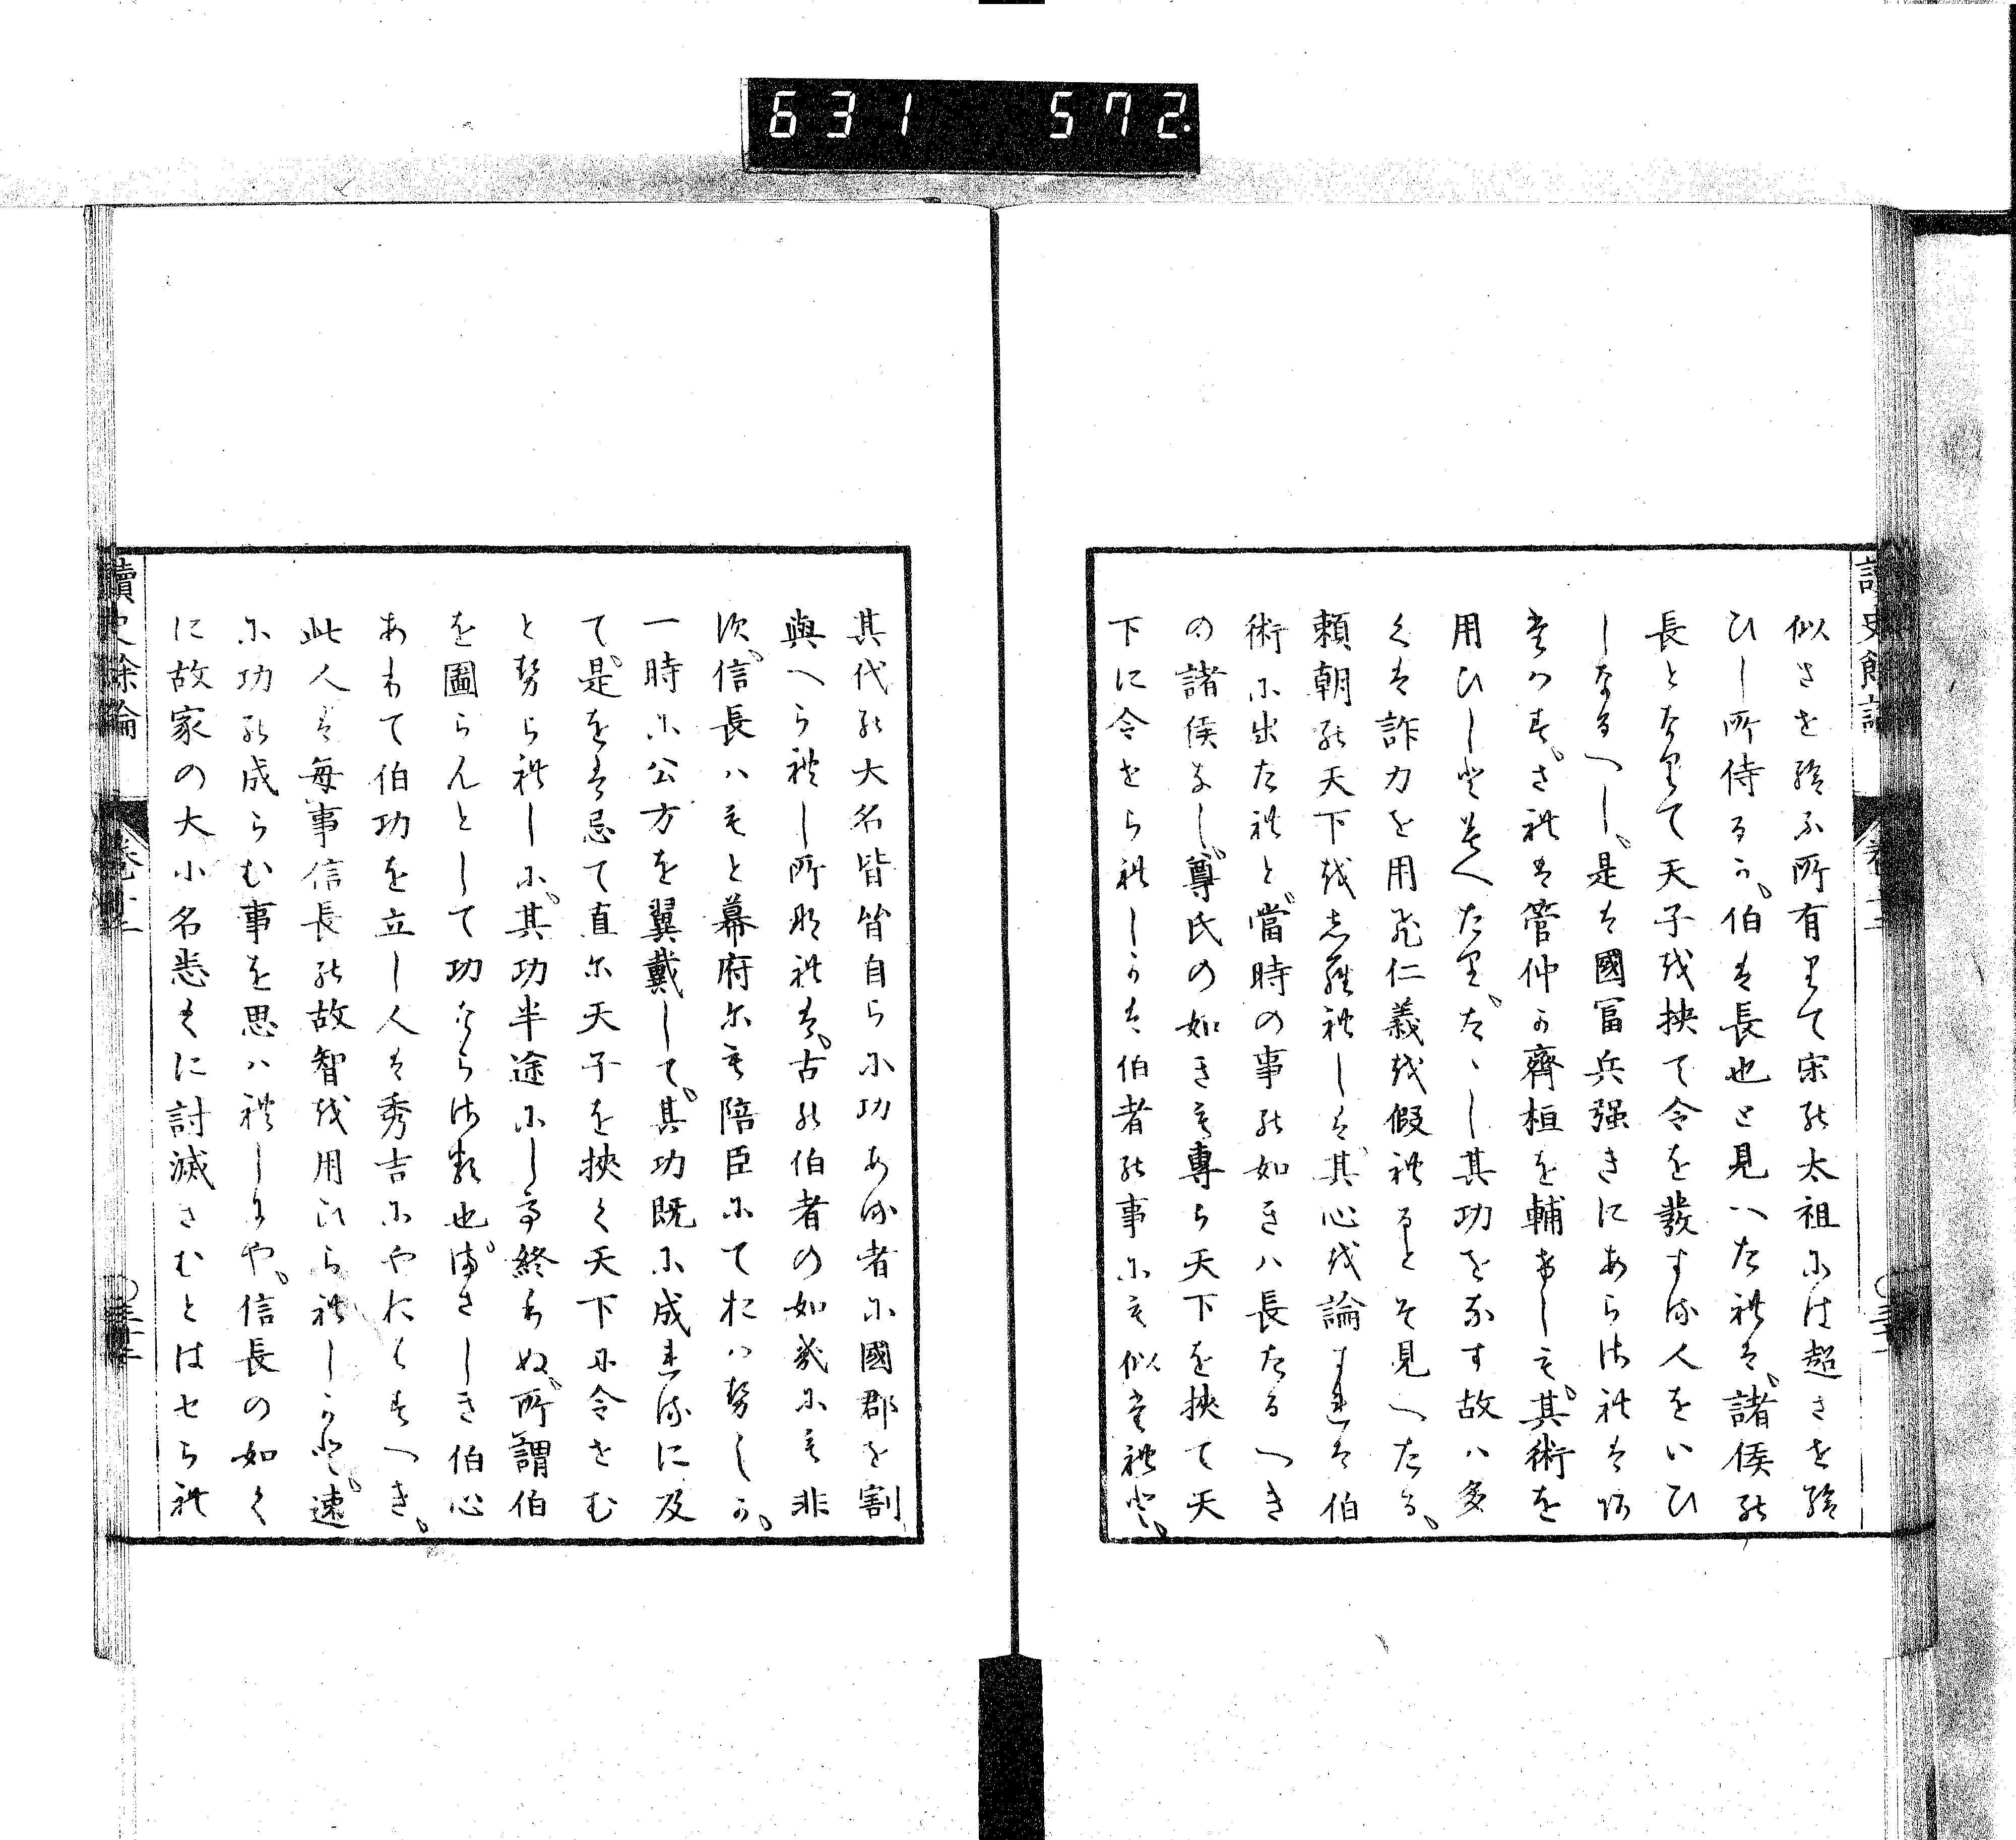 631 572.
讀史餘論
似させ給ふ所有りて宋の太祖には超させ給
ひし所侍るか、伯は長也と見へたれは、諸侯の
長となりて天子を挾て令を發する人をいひ
しなるへし、是は國冨兵强きにあらされは阿
たはす、されは管仲か齊桓を輔けしも、其術を
用ひしとそ見へたり、たゝし其功をなす故ハ多
くは詐力を用ひ仁義を假れるとそ見へたる、
頼朝の天下をしられしは、其心を論すれは伯
術に出たれと、當時の事の如きハ長たるへき
の諸侯なし、尊氏の如きも專ら天下を挾て天
下に令せられしかは伯者の事にも似たれと、
其代の大名皆皆自らに功ある者に國郡を割
與へられし所なれは、古の伯者の如くにも非
す、信長ハもと幕府にも陪臣にておハせしか、
一時に公方を翼戴して、其功既に成れるに及
て、是をは忌て直に天子を挾く天下に令せむ
とせられしに、其功半途にして終りぬ、所謂伯
を圖らんとして功ならさる也、まさしき伯心
ありて伯功を立し人は秀吉にやおはすへき、
此人は每事信長の故智を用ひられしかと、速
に功の成らむ事を思ハれしにや、信長の如く
に故家の大小名悉くに討滅さむとはせられ
讀史餘論